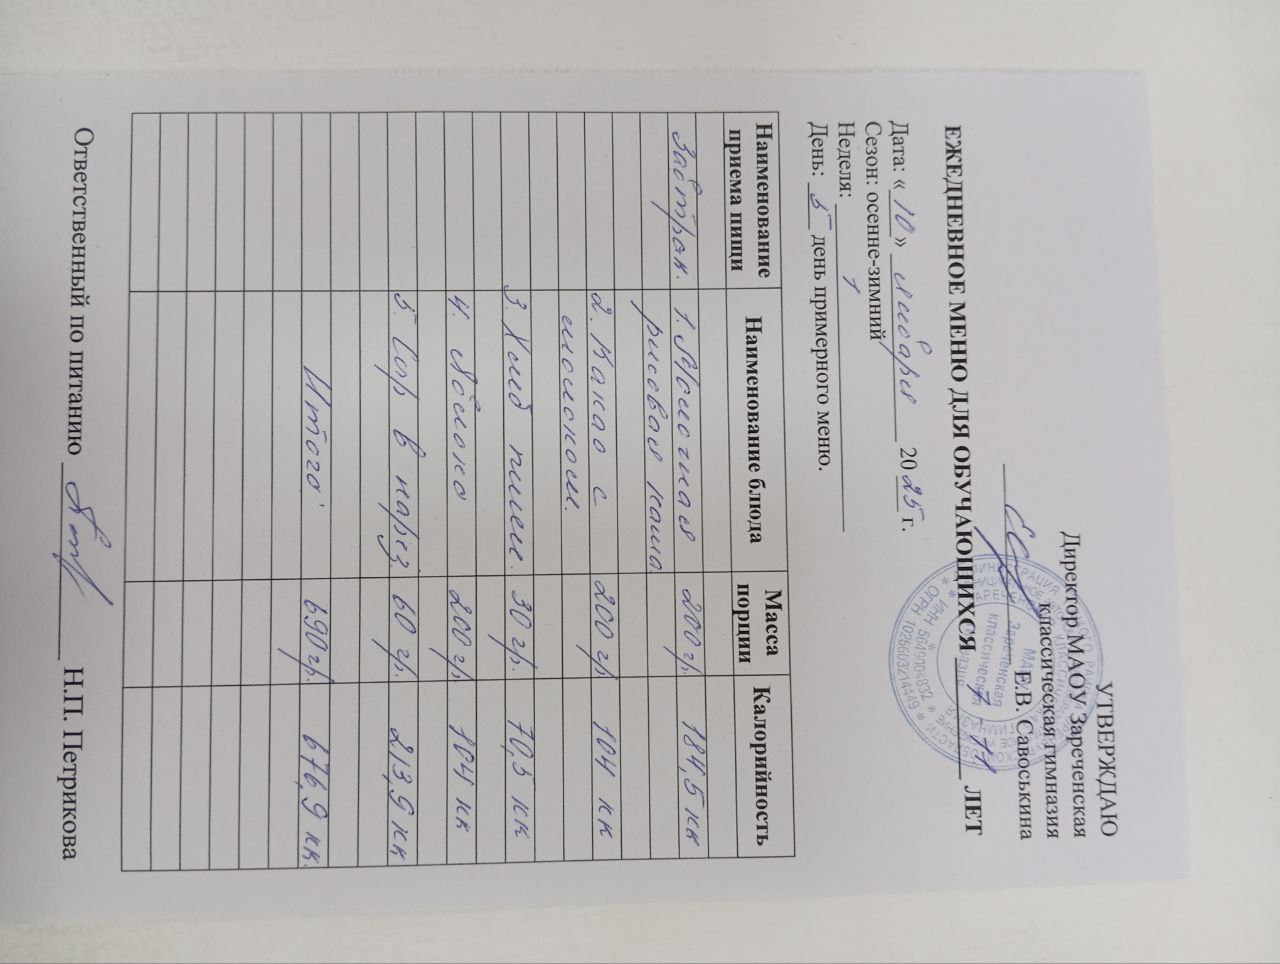 УТВЕРЖДАЮ
Директор МАОУ Зареченская
классическая гимназия
Е.В. Савоськина
ЕЖЕДНЕВНОЕ МЕНЮ ДЛЯ ОБУЧАЮЩИХСЯ 7-11 ЛЕТ
Дата: «10» января 2025 г.
Сезон: осенне-зимний
Неделя: 1
День: 5 день примерного меню.
Наименование приема пищи Наименование блюда Масса порции Калорийность
Завтрак. 1. Молочная 200 гр. 184,5 кк
рисовая каша
2. Какао с 200 гр 104 кк
молоком.
3. Хлеб пшен. 30 гр. 70,5 кк
4. Яблоко 200 гр. 104 кк
5. Сыр в нарез. 60 гр. 213,9 кк
Итого: 690 гр. 676,9 кк.
Ответственный по питанию Н.П. Петрикова